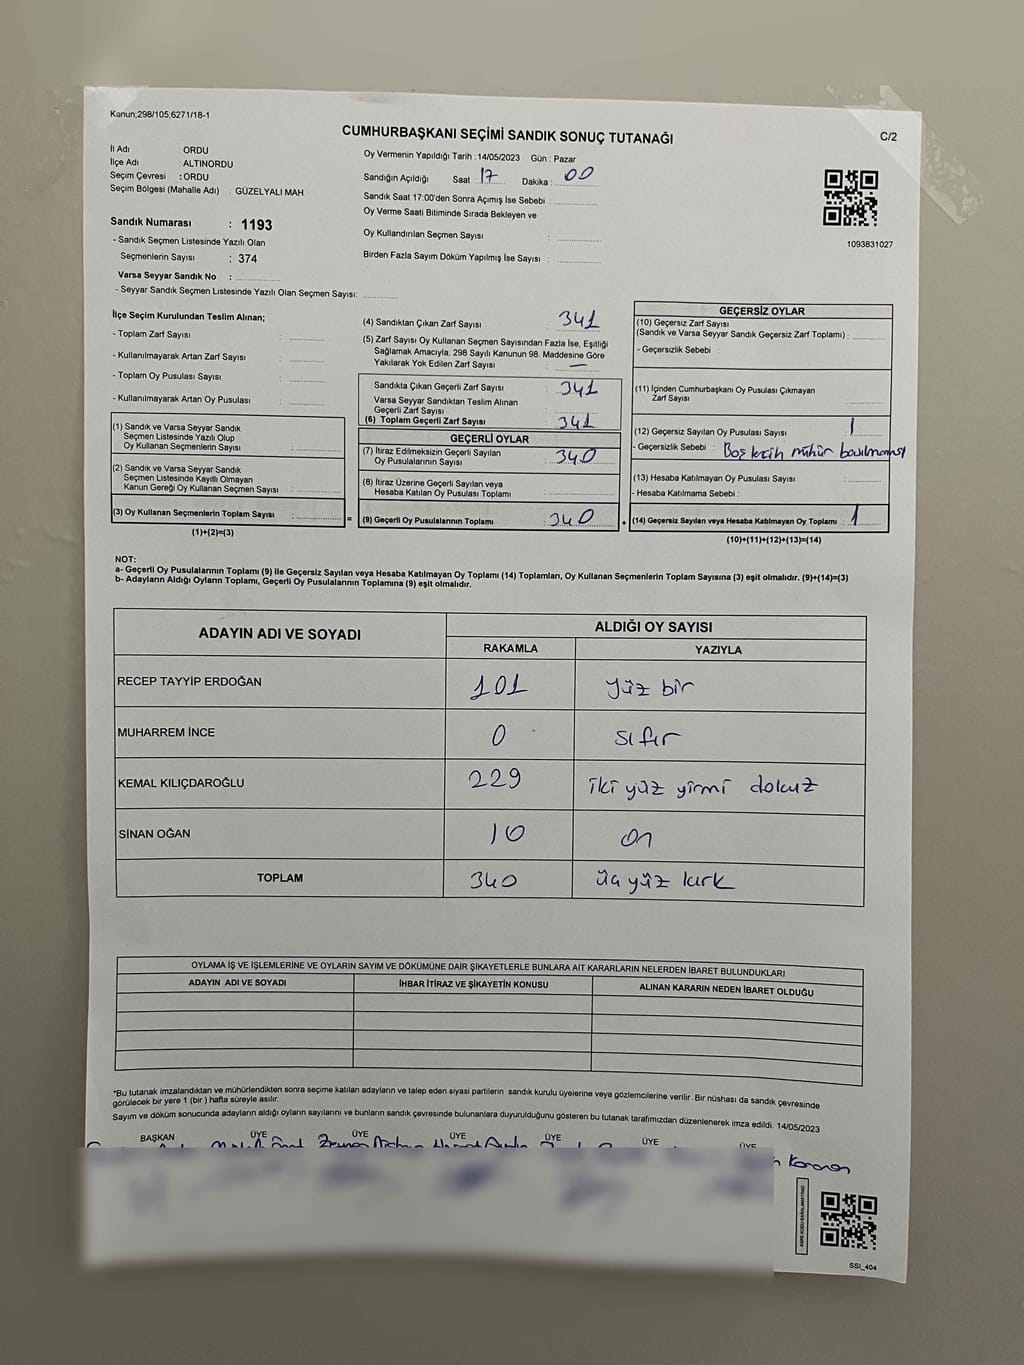 Kanun;298/105,6271/18-1
CUMHURBAŞKANI SEÇİMİ SANDIK SONUÇ TUTANAĞI
C/2
İl Adı : ORDU
İlçe Adı : ALTINORDU
Seçim Çevresi : ORDU
Seçim Bölgesi (Mahalle Adı) : GÜZELYALI MAH
Sandık Numarası : 1193
- Sandık Seçmen Listesinde Yazılı Olan
Seçmenlerin Sayısı : 374
Varsa Seyyar Sandık No :
- Seyyar Sandık Seçmen Listesinde Yazılı Olan Seçmen Sayısı:
Oy Vermenin Yapıldığı Tarih : 14/05/2023 Gün : Pazar
Sandığın Açıldığı Saat : 17 Dakika : 00
Sandık Saat 17:00'den Sonra Açımış İse Sebebi :
Oy Verme Saati Bitiminde Sırada Bekleyen ve
Oy Kullandırılan Seçmen Sayısı :
Birden Fazla Sayım Döküm Yapılmış İse Sayısı :
1093831027
İlçe Seçim Kurulundan Teslim Alınan;
- Toplam Zarf Sayısı :
- Kullanılmayarak Artan Zarf Sayısı :
- Toplam Oy Pusulası Sayısı :
- Kullanılmayarak Artan Oy Pusulası :
(1) Sandık ve Varsa Seyyar Sandık
Seçmen Listesinde Yazılı Olup
Oy Kullanan Seçmenlerin Sayısı :
(2) Sandık ve Varsa Seyyar Sandık
Seçmen Listesinde Kayıtlı Olmayan
Kanun Gereği Oy Kullanan Seçmen Sayısı :
(3) Oy Kullanan Seçmenlerin Toplam Sayısı :
(1)+(2)=(3)
(4) Sandıktan Çıkan Zarf Sayısı : 341
(5) Zarf Sayısı Oy Kullanan Seçmen Sayısından Fazla İse, Eşitliği
Sağlamak Amacıyla, 298 Sayılı Kanunun 98. Maddesine Göre
Yakılarak Yok Edilen Zarf Sayısı : —
Sandıkta Çıkan Geçerli Zarf Sayısı : 341
Varsa Seyyar Sandıktan Teslim Alınan
Geçerli Zarf Sayısı :
(6) Toplam Geçerli Zarf Sayısı : 341
GEÇERLİ OYLAR
(7) İtiraz Edilmeksizin Geçerli Sayılan
Oy Pusulalarının Sayısı : 340
(8) İtiraz Üzerine Geçerli Sayılan veya
Hesaba Katılan Oy Pusulası Toplamı :
= (9) Geçerli Oy Pusulalarının Toplamı : 340 +
GEÇERSİZ OYLAR
(10) Geçersiz Zarf Sayısı
(Sandık ve Varsa Seyyar Sandık Geçersiz Zarf Toplamı) :
- Geçersizlik Sebebi :
(11) İçinden Cumhurbaşkanı Oy Pusulası Çıkmayan
Zarf Sayısı :
(12) Geçersiz Sayılan Oy Pusulası Sayısı : 1
- Geçersizlik Sebebi : Boş tercih mühür basılmamış
(13) Hesaba Katılmayan Oy Pusulası Sayısı :
- Hesaba Katılmama Sebebi :
(14) Geçersiz Sayılan veya Hesaba Katılmayan Oy Toplamı : 1
(10)+(11)+(12)+(13)=(14)
NOT:
a- Geçerli Oy Pusulalarının Toplamı (9) ile Geçersiz Sayılan veya Hesaba Katılmayan Oy Toplamı (14) Toplamları, Oy Kullanan Seçmenlerin Toplam Sayısına (3) eşit olmalıdır. (9)+(14)=(3)
b- Adayların Aldığı Oyların Toplamı, Geçerli Oy Pusulalarının Toplamına (9) eşit olmalıdır.
ADAYIN ADI VE SOYADI
ALDIĞI OY SAYISI
RAKAMLA YAZIYLA
RECEP TAYYİP ERDOĞAN 101 yüz bir
MUHARREM İNCE 0 sıfır
KEMAL KILIÇDAROĞLU 229 iki yüz yirmi dokuz
SİNAN OĞAN 10 on
TOPLAM 340 üç yüz kırk
OYLAMA İŞ VE İŞLEMLERİNE VE OYLARIN SAYIM VE DÖKÜMÜNE DAİR ŞİKAYETLERLE BUNLARA AİT KARARLARIN NELERDEN İBARET BULUNDUKLARI
ADAYIN ADI VE SOYADI İHBAR İTİRAZ VE ŞİKAYETİN KONUSU ALINAN KARARIN NEDEN İBARET OLDUĞU
*Bu tutanak imzalandıktan ve mühürlendikten sonra seçime katılan adayların ve talep eden siyasi partilerin sandık kurulu üyelerine veya gözlemcilerine verilir. Bir nüshası da sandık çevresinde
görülecek bir yere 1 (bir ) hafta süreyle asılır.
Sayım ve döküm sonucunda adayların aldığı oyların sayılarını ve bunların sandık çevresinde bulunanlara duyurulduğunu gösteren bu tutanak tarafımızdan düzenlenerek imza edildi. 14/05/2023
BAŞKAN ÜYE ÜYE ÜYE ÜYE ÜYE ÜYE
SSI_404